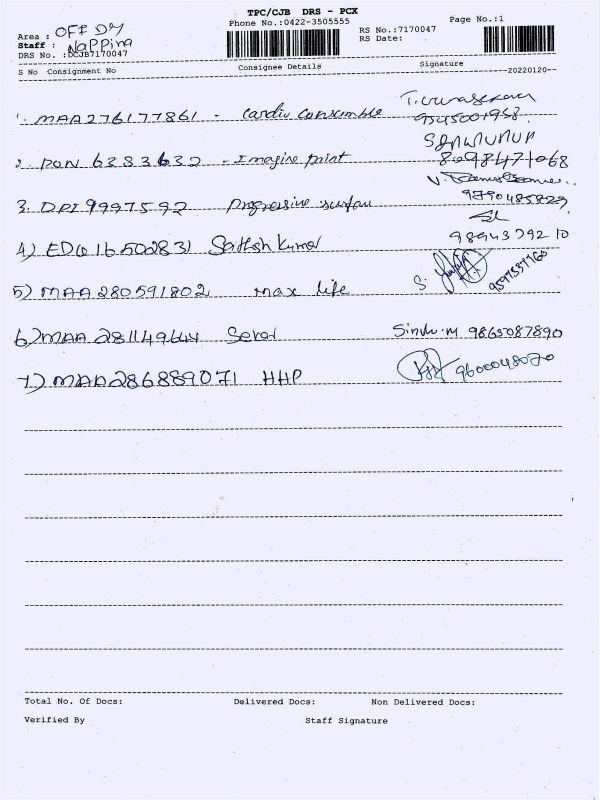 TPC/CJB DRS - PCX
Phone No.:0422-3505555
Page No.:1
Area : OFF Dy
RS No.:7170047
Staff : Napping
RS Date:
DRS No. :DCJB7170047
S No Consignment No Consignee Details Signature
20220120
1. MAA276177861 - Cardio
2. PON 6383632 - Imagine Print 8098471068
3. DPI 9997592 Progressive 9790485823
4) EDQ16502831 Sathish Kumar 9894379210
5) MAA 280591802 max life S. 9597557760
6) MAA 281149644 Seval Sindu.M 9865087890
7) MAA286889071 HHP 9600048070
Total No. Of Docs: Delivered Docs: Non Delivered Docs:
Verified By Staff Signature